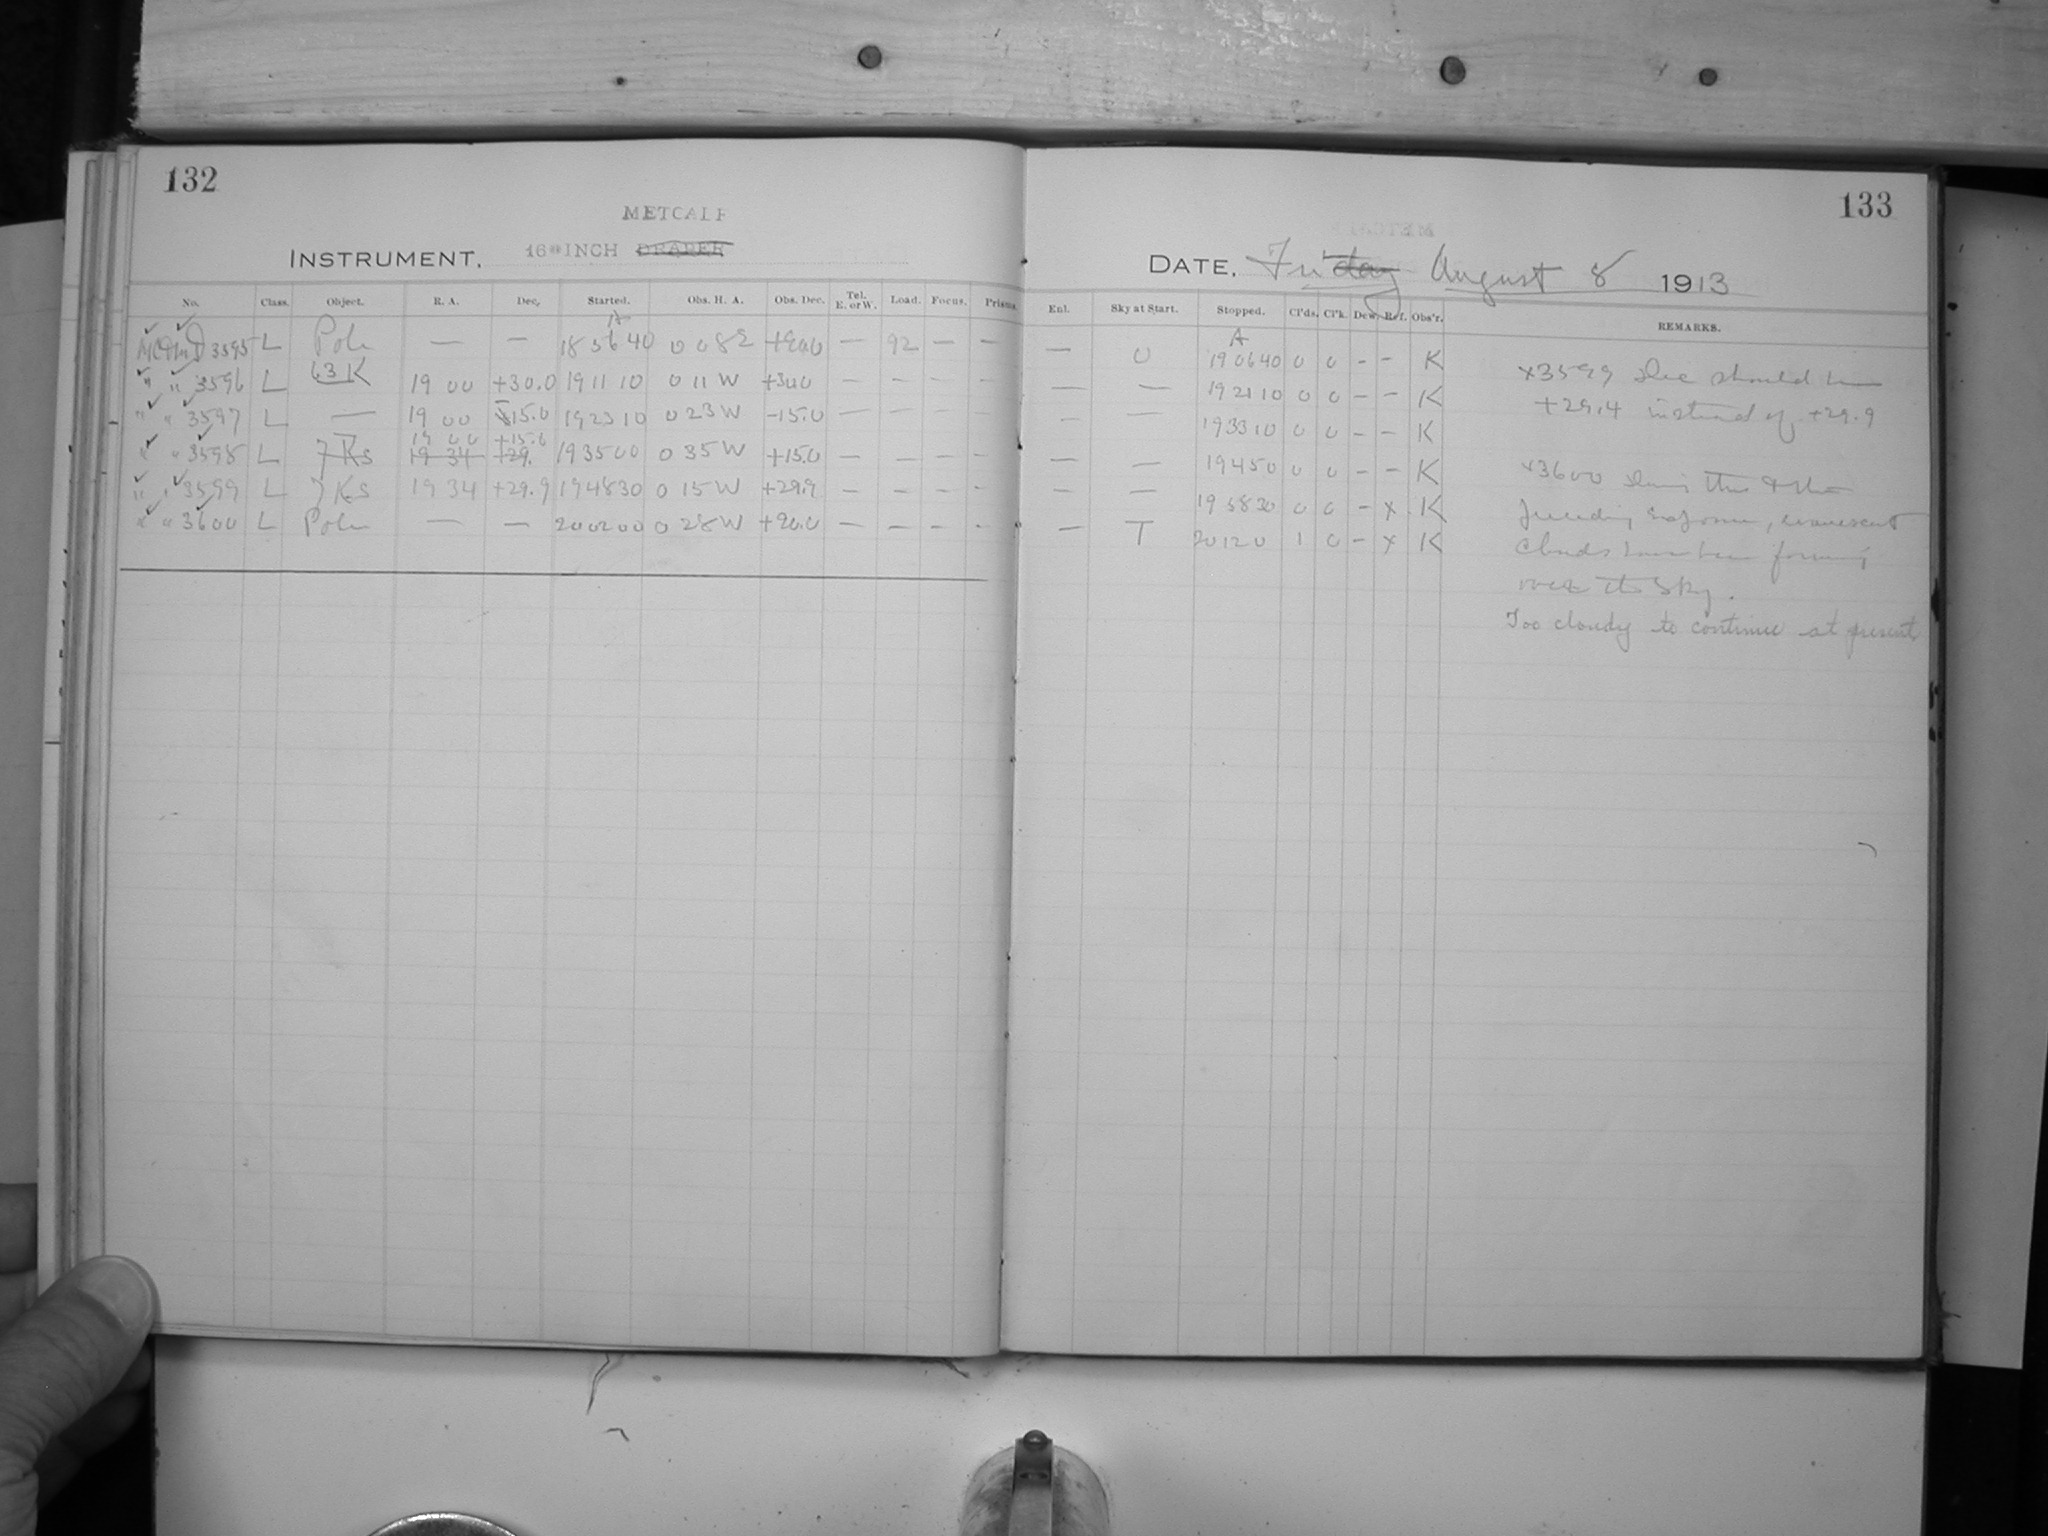 132
METCALF
INSTRUMENT, 16 INCH DRAPER
No. Class. Object. R. A. Dec. Started. Obs. H. A. Obs. Dec. Tel. E. or W. Load. Focus. Prisms.
A
3595 L Pole — — 18 56 40 0 08 +90.0 — 92 — —
63K
" " 3596 L 19 00 +30.0 19 11 10 0 11 W +30.0 — — — —
" " 3597 L — 19 00 -15.0 19 23 10 0 23 W -15.0 — — — —
19 00 +15.0
" " 3598 L 7 Ks 19 34 +29. 19 35 00 0 35 W +15.0 — — — -
" " 3599 L 7 Ks 19 34 +29.9 19 48 30 0 15 W +29.9 — — - -
" " 3600 L Pole — — 20 02 00 0 28 W +90.0 — — - -
133
DATE, Friday August 8 1913
Enl. Sky at Start. Stopped. Cl'ds. Cl'k. Dew. Ref. Obs'r. REMARKS.
A
— 0 19 06 40 0 0 - - K
— — 19 21 10 0 0 - - K
— — 19 33 10 0 0 - - K
— — 19 45 0 0 0 - - K
— — 19 58 30 0 0 - x K
— T 20 12 0 1 0 - x K
x3599 Dec should be
+29.4 instead of +29.9
x3600 During this & the
preceding exposure, evanescent
clouds have been forming
over the sky.
Too cloudy to continue at present